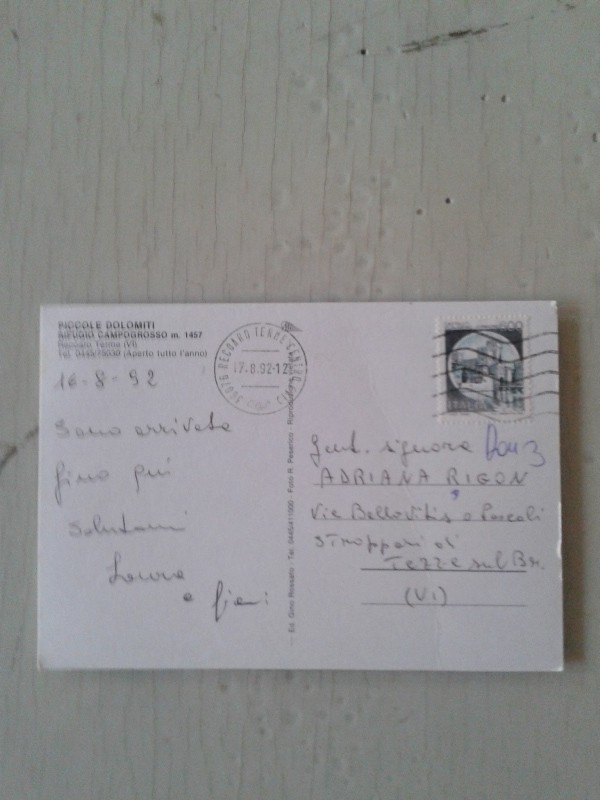 PICCOLE DOLOMITI
RIFUGIO CAMPOGROSSO m. 1457
Recoaro Terme (VI)
Tel. 0445/75030 (Aperto tutto l'anno)
16-8-92
Sono arrivata
fino quì
Saluteni
Laura
e
36076 RECOARO TERME CENTRO
17.8.92-12
Ed. Gino Rossato - Tel. 0445/411000 - Foto R. Pesavico - Riproduzione
ITALIA
Gent. signora
ADRIANA RIGON
Via Bellavitis o Pascoli
Stroppari di
Tezze sul Br.
(VI)